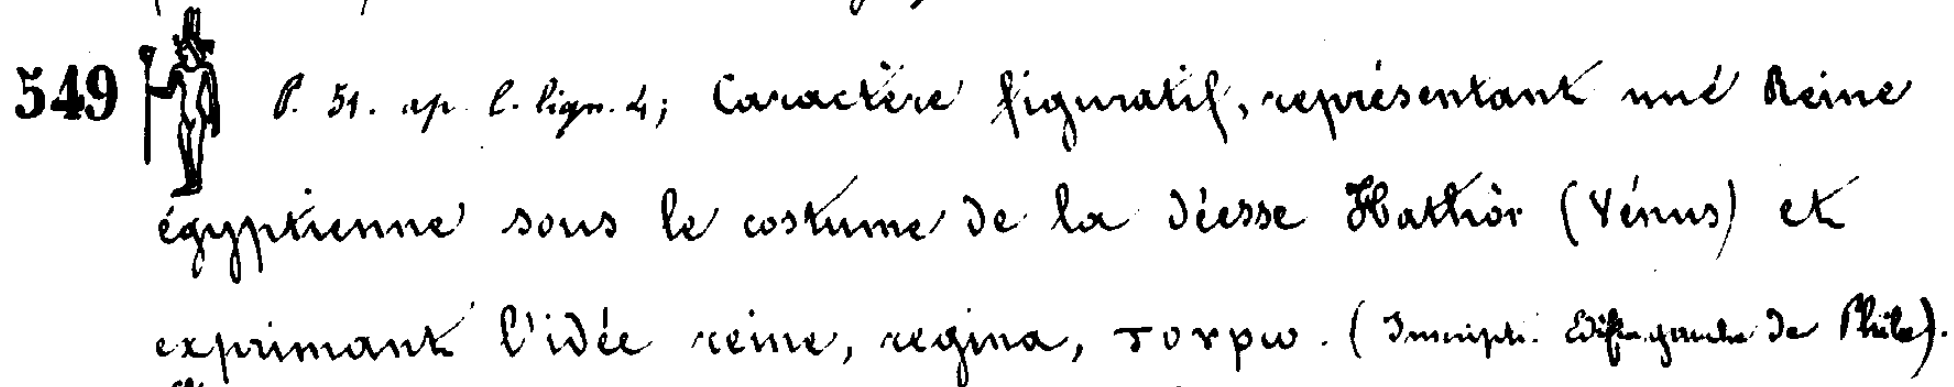 549 P. 51. ap. l. lign. 4; Caractère figuratif, représentant une Reine
égyptienne sous le costume de la déesse Hathôr (Vénus) et
exprimant l'idée reine, regina, τουρω. (Inscript. Edif. gauche de Philæ).